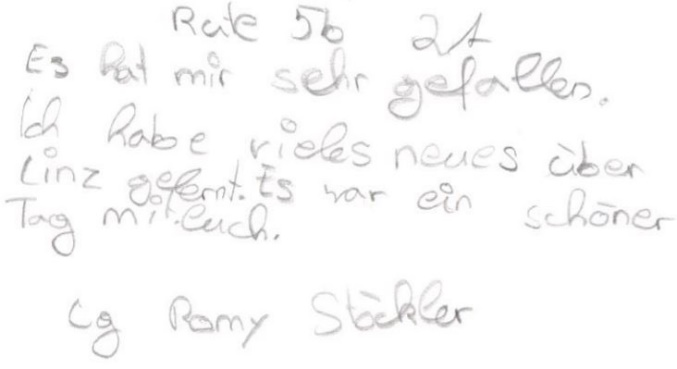 Rate 5b 21
Es hat mir sehr gefallen.
Ich habe vieles neues über
Linz gelernt. Es war ein schöner
Tag mit euch.
Lg Romy Stöckler